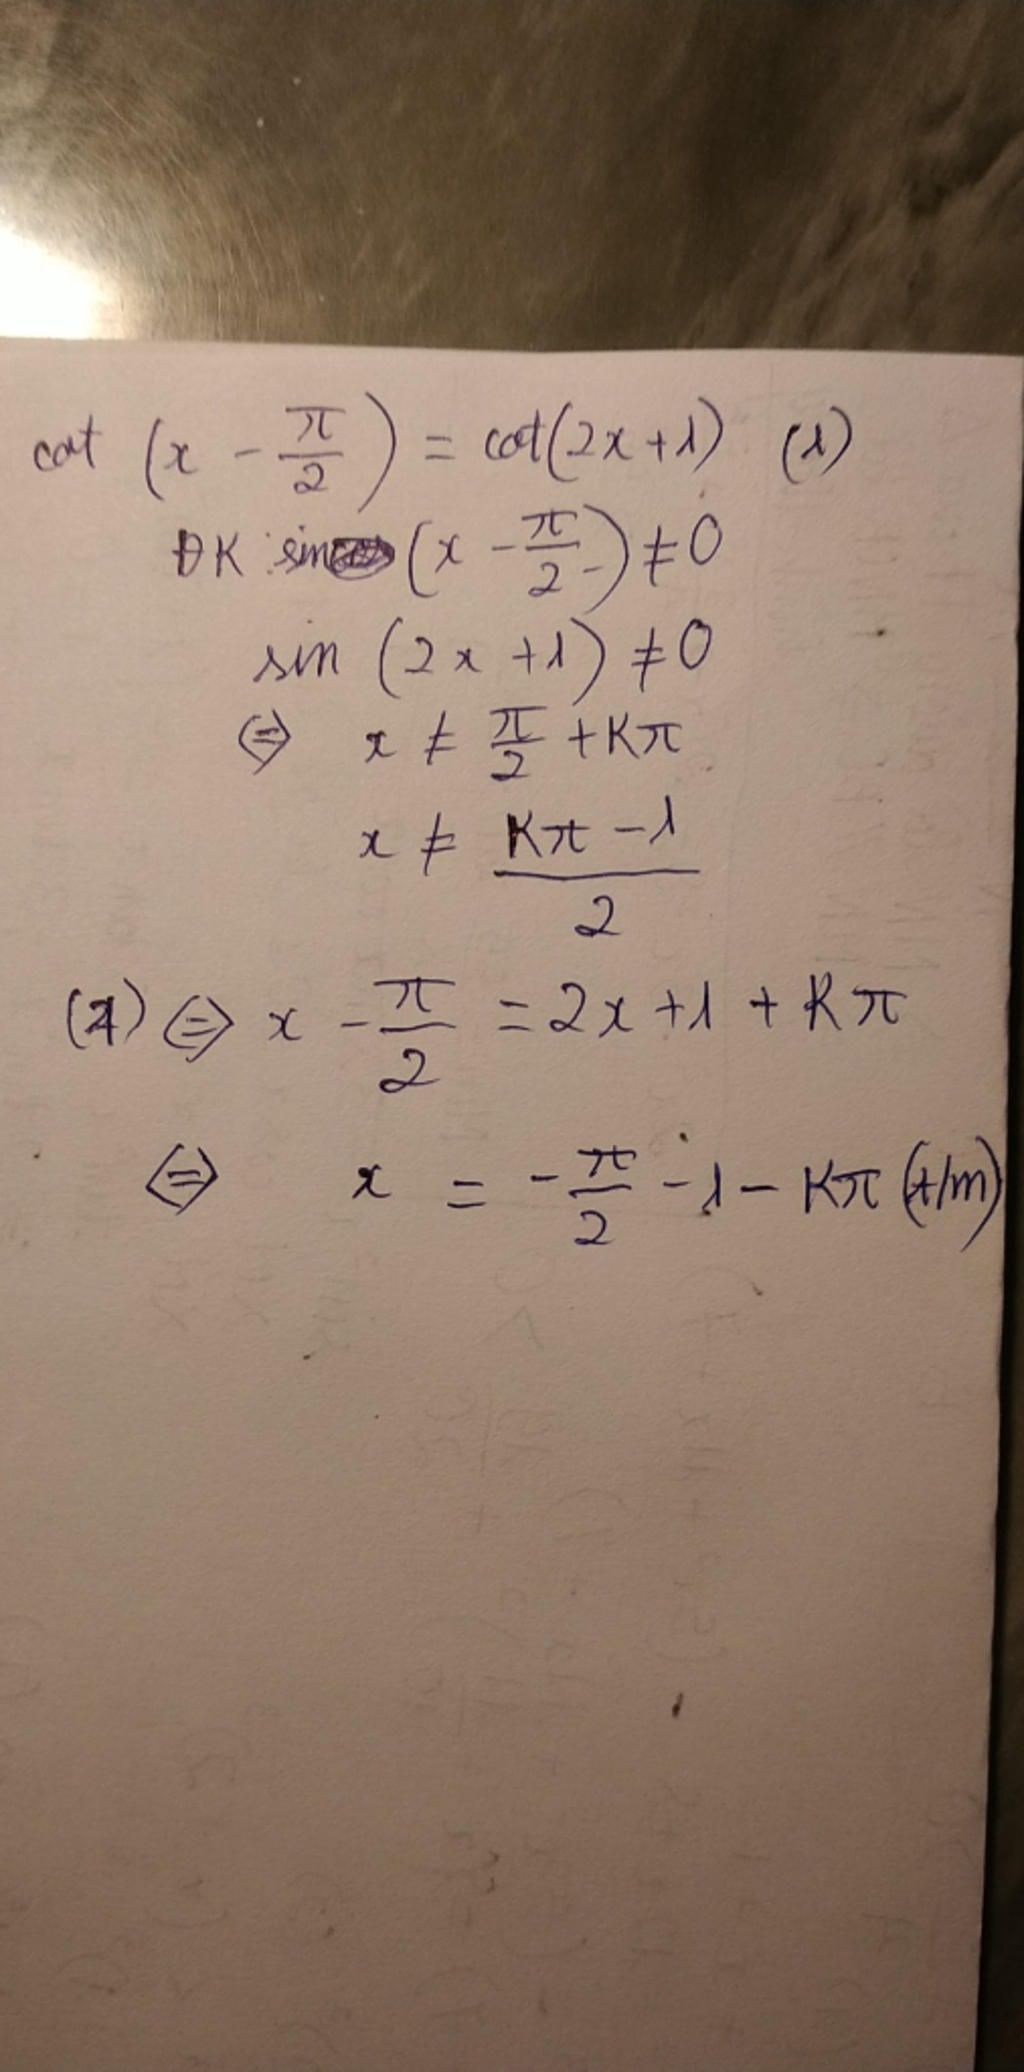 cot (x - π/2) = cot(2x+1) (1)
ĐK: sin (x - π/2) ≠ 0
sin (2x +1) ≠ 0
⇔ x ≠ π/2 + Kπ
x ≠ (Kπ - 1)/2
(1) ⇔ x - π/2 = 2x +1 + Kπ
⇔ x = -π/2 - 1 - Kπ (t/m)